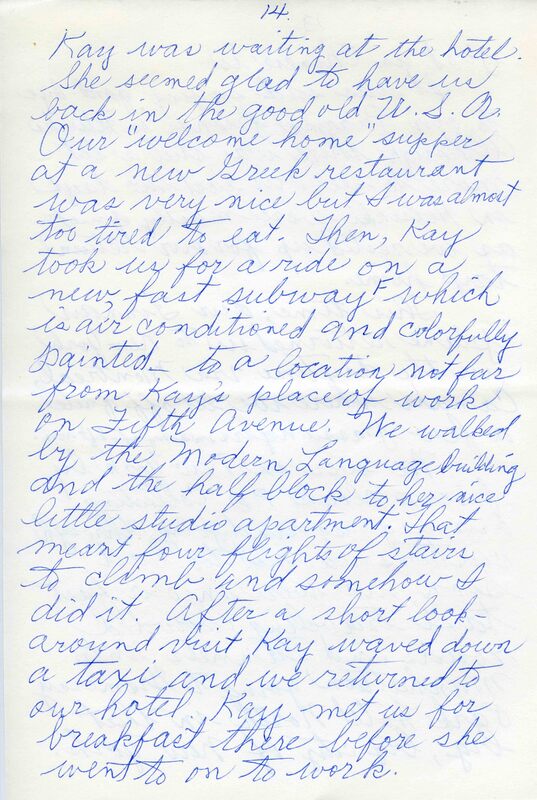 14.
Kay was waiting at the hotel.
She seemed glad to have us
back in the good old U. S. A.
Our "welcome home" supper
at a new Greek restaurant
was very nice but I was almost
too tired to eat. Then, Kay
took us for a ride on a
new, fast subway F which
is air conditioned and colorfully
painted_ to a location not far
from Kay's place of work
on Fifth Avenue. We walked
by the Modern Language building
and the half block to her nice
little studio apartment. That
meant four flights of stairs
to climb and somehow I
did it. After a short look-
around visit Kay waved down
a taxi and we returned to
our hotel. Kay met us for
breakfast there before she
went to on to work.